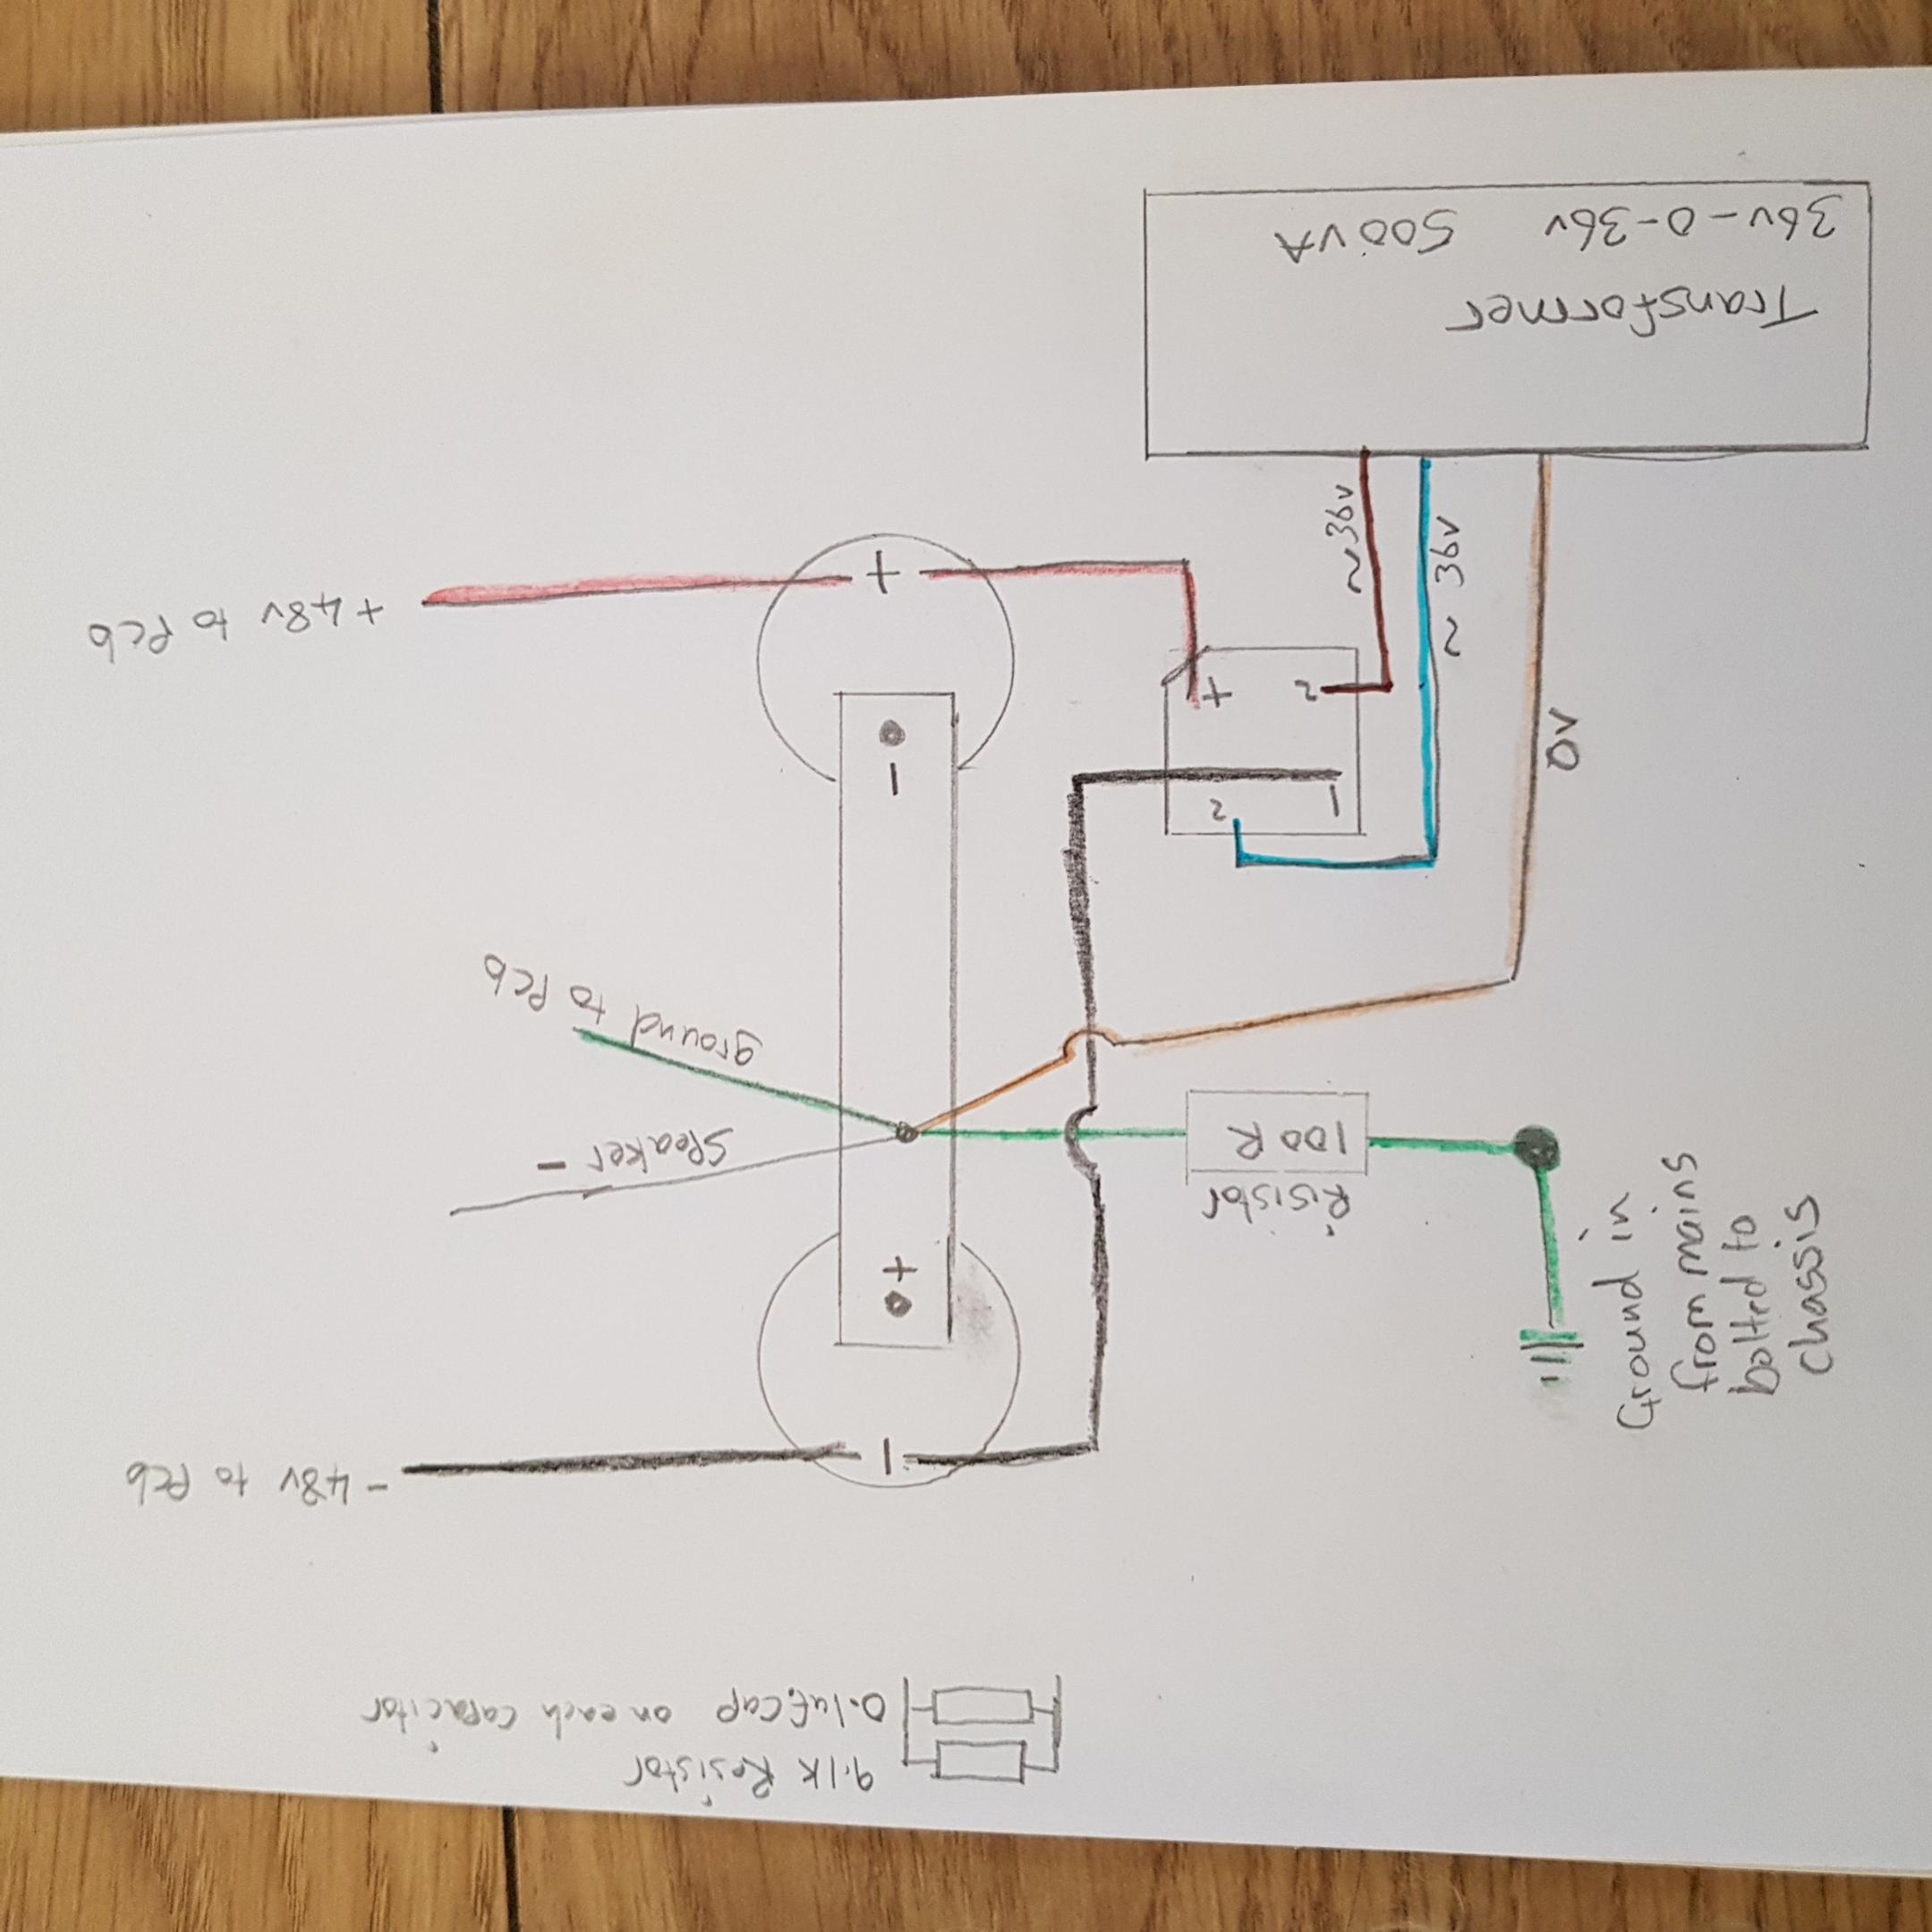 36v-0-36v 500VA
Transformer
~36v
~ 36v
0V
+
+48v to Pcb
+ 2
-
2 -
ground to Pcb
Speaker -
100R
Risistor
Ground in
from mains
bolted to
chassis
+
-
-48v to Pcb
0.1uf cap on each capacitor
9.1K Resistor